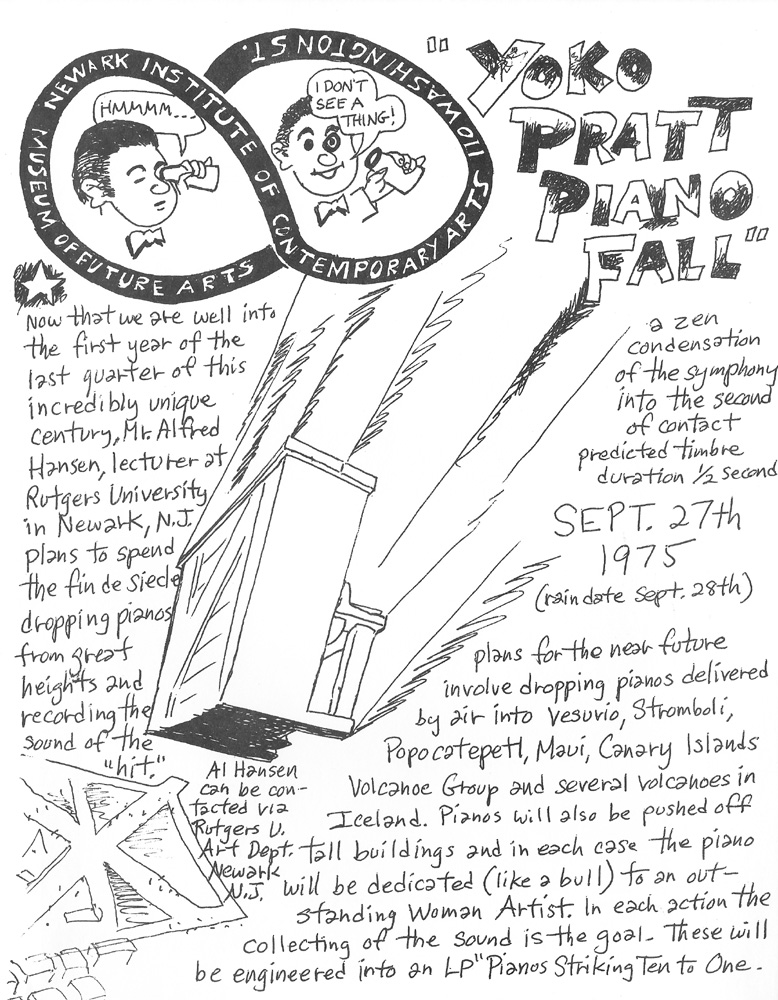 NEWARK INSTITUTE OF CONTEMPORARY ARTS
110 WASHINGTON ST.
MUSEUM OF FUTURE ARTS
HMMMM...
I DON'T
SEE A
THING!
"YOKO
PRATT
PIANO
FALL"
Now that we are well into
the first year of the
last quarter of this
incredibly unique
century, Mr. Alfred
Hansen, lecturer at
Rutgers University
in Newark, N.J.
plans to spend
the fin de siecle
dropping pianos
from great
heights and
recording the
sound of the
"hit."
a zen
condensation
of the symphony
into the second
of contact
predicted timbre
duration 1/2 second
SEPT. 27th
1975
(raindate Sept. 28th)
plans for the near future
involve dropping pianos delivered
by air into Vesuvio, Stromboli,
Popocatepetl, Maui, Canary Islands
Volcanoe Group and several volcanoes in
Iceland. Pianos will also be pushed off
tall buildings and in each case the piano
will be dedicated (like a bull) to an out-
standing Woman Artist. In each action the
collecting of the sound is the goal. These will
be engineered into an LP "Pianos Striking Ten to One.
Al Hansen
can be con-
tacted via
Rutgers U.
Art Dept.
Newark
N.J.